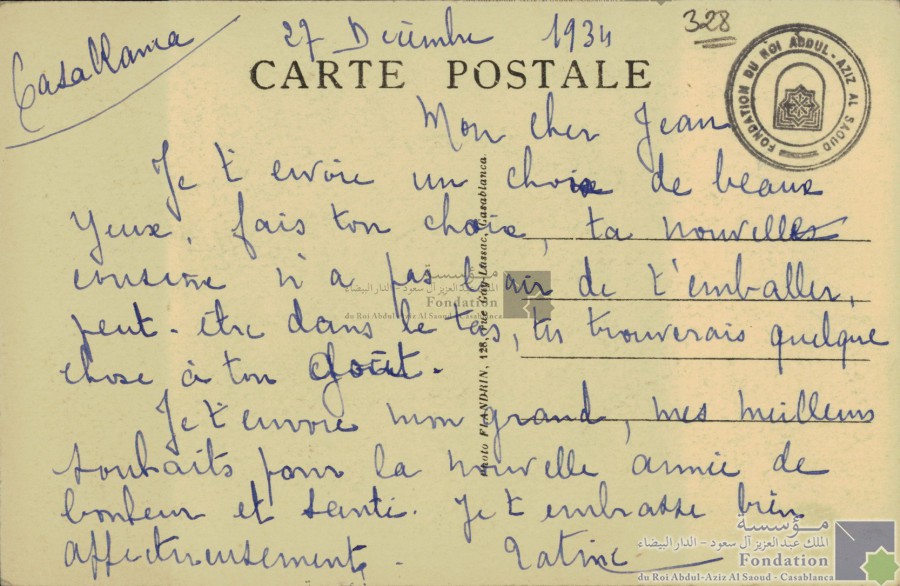 Casablanca
27 Décembre 1934
328
CARTE POSTALE
FONDATION DU ROI ABDUL-AZIZ AL SAOUD
Mon cher Jean
Je t'envoie un choix de beaux
yeux, fais ton choix, ta nouvelle
cousine n'a pas l'air de t'emballer,
peut-être dans le tas, tu trouverais quelque
chose à ton goût.
Je t'envoie mon grand, mes meilleurs
souhaits pour la nouvelle année de
bonheur et santé. Je t'embrasse bien
affectueusement.
Photo FLANDRIN, 128, rue Gay-Lussac, Casablanca
مؤسسة
الملك عبد العزيز آل سعود - الدار البيضاء
Fondation
du Roi Abdul-Aziz Al Saoud - Casablanca
مؤسسة
الملك عبد العزيز آل سعود - الدار البيضاء
Fondation
du Roi Abdul-Aziz Al Saoud - Casablanca